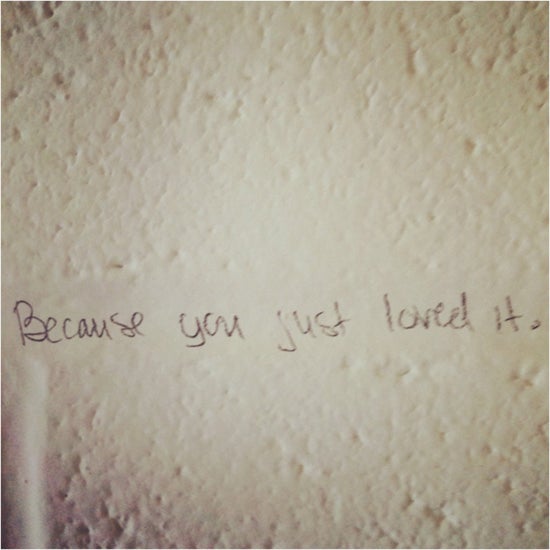 Because you just loved it.